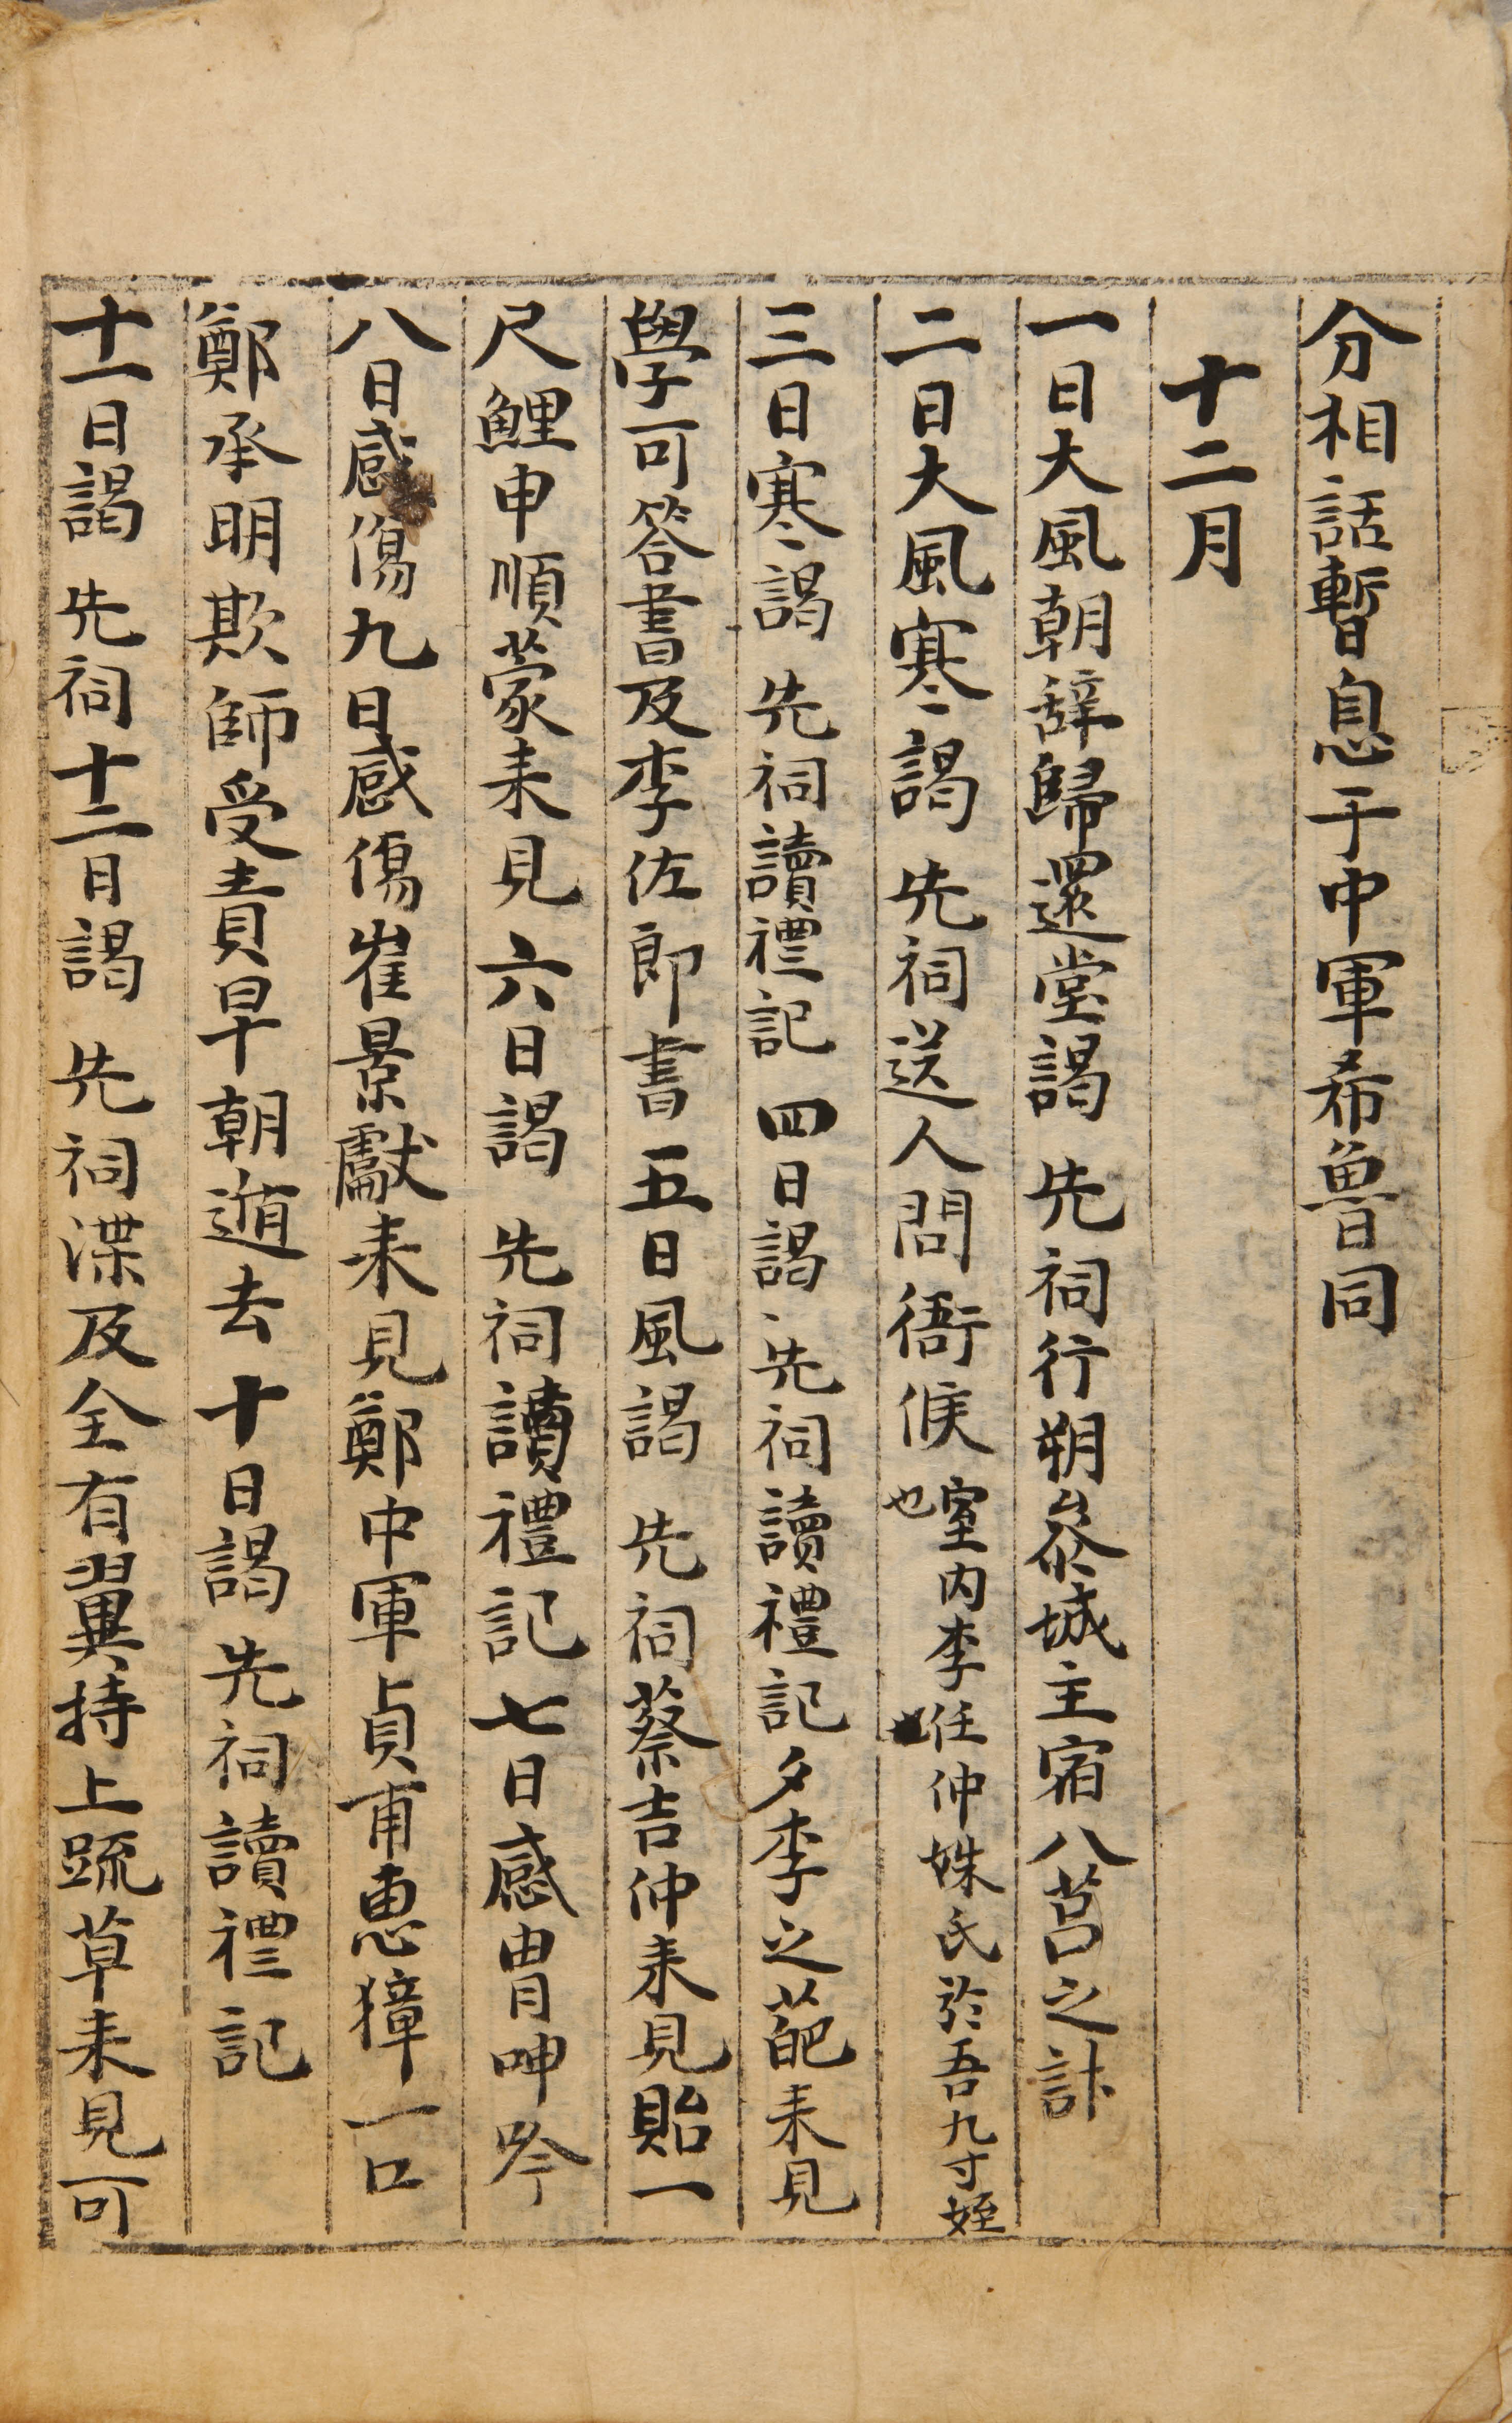 分相話暫息于中軍希魯同
十二月
一日大風朝辞歸還堂謁 先祠行朔叅城主宿八莒之計
二日大風寒謁 先祠送人問衙候室内李任仲姝氏於吾九寸姪也
三日寒謁 先祠讀禮記 四日謁 先祠讀禮記夕李之葩来見
學可答書及李佐郎書 五日風謁 先祠蔡吉仲来見貽一
尺鯉申順蒙来見 六日謁 先祠讀禮記 七日感冑呻吟
八日感傷九日感傷崔景獻来見鄭中軍貞甫惠獐一口
鄭承明欺師受責早朝遁去 十日謁 先祠讀禮記
十一日謁 先祠十二日謁 先祠渫及全有翼持上疏草来見可